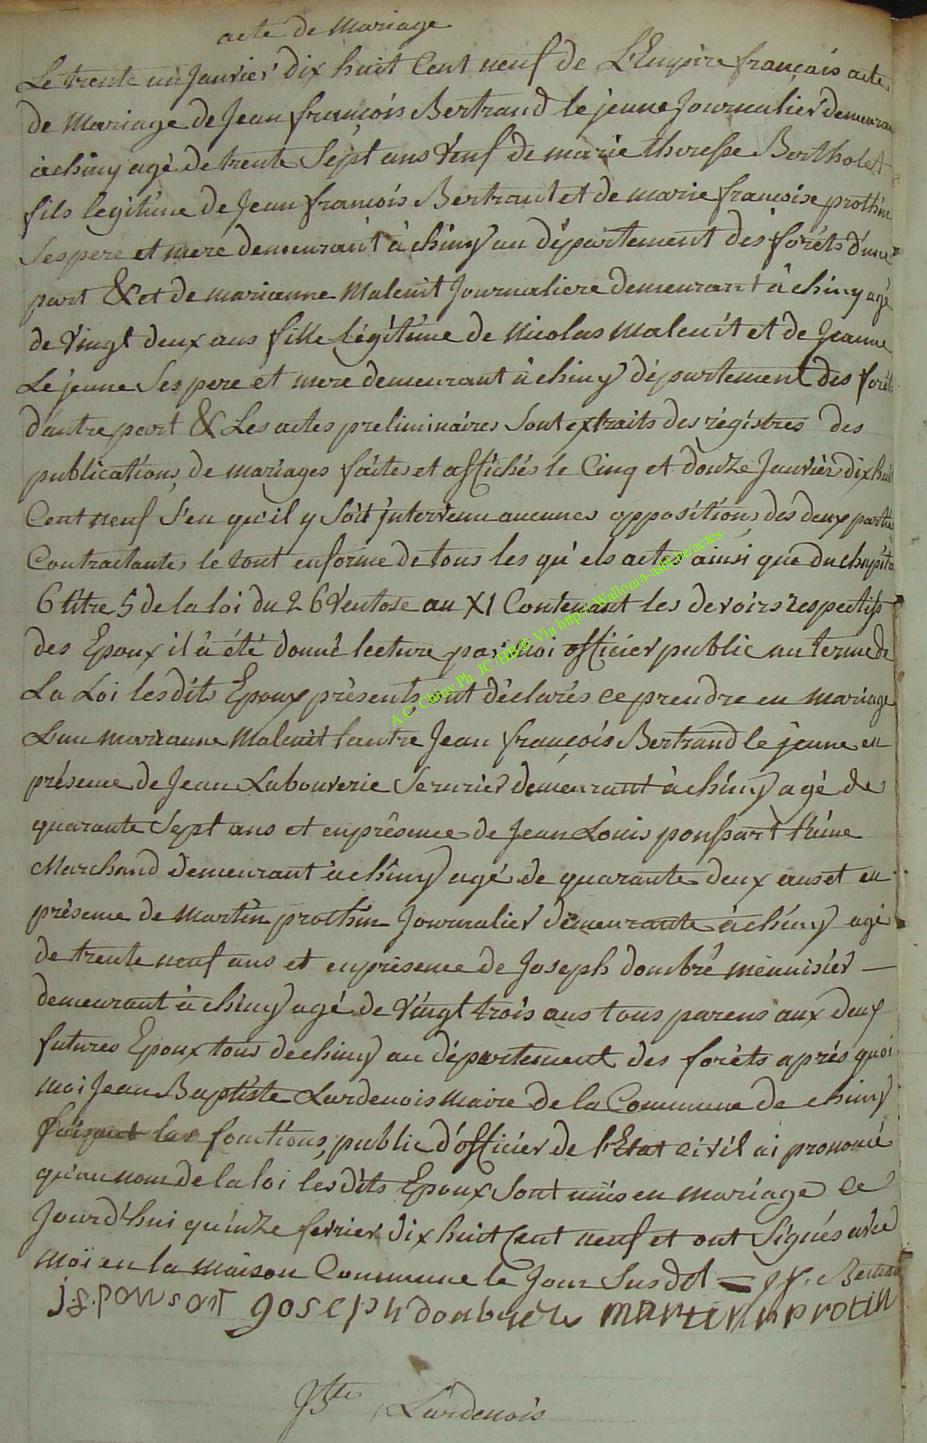 acte de Mariage
Le trente un Janvier dix huit Cent neuf de L'Empire français acte
de Mariage de Jean françois Bertrand le jeune Journalier demeurant
à chiny agé de trente Sept ans veuf de marie theresse Bertholet
fils legitime de Jean françois Bertrant et de marie françoise prothin
Ses pere et mere demeurant à chiny au département des forêts d'une
part & et de marianne Maleuit Journaliere demeurant à chiny agé
de vingt deux ans fille légitime de Nicolas maleuit et de Jeanne
Le jeune Ses pere et mere demeurant à chiny département des forêts
d'autre part & Les actes preliminaires Sont extraits des régistres des
publications de mariages faites et affichés le Cinq et douze Janvier dix huit
Cent neuf S'en qu'il y Soit intervenu aucunes oppositions des deux parties
Contractantes le tout en forme de tous les qu'els actes ainsi que du chapitre
6 titre 5 de la loi du 26 ventose au XI Contenant les devoirs respectifs
des Epoux il à été donné lecture par moi officier public au terme de
La Loi les dits Epoux présents ont déclarés ce prendre en mariage
L'un marianne Maleuit l'autre Jean françois Bertrand le jeune en
présence de Jean Labouverie Serurier demeurant à chiny agé de
quarante Sept ans et en présence de Jean Louis ponssart
Marchand demeurant à chiny agé de quarante deux ans et en
présence de Martin prothin Journalier demeurante à chiny agé
de trente neuf ans et en présence de Joseph dombré menuisier
demeurant à chiny agé de vingt trois ans tous parens aux deux
futures Epoux tous de chiny au département des forêts après quoi
moi Jean Baptiste Lardenois maire de la Commune de chiny
faisant les fonctions public d'officier de l'Etat civil ai prononcé
qu'au nom de la loi les dits Epoux Sont unis en mariage ce
Jourd'hui quinze fevrier dix huit Cent neuf et ont Signés avec
moi en la maison Commune le Jour Susdit = J f Bertrand
ponsart Joseph martin protin
JBte Lardenois
A.C. Chiny Ph. JC /HB© Via http://Wallonia-asbl.be/actes